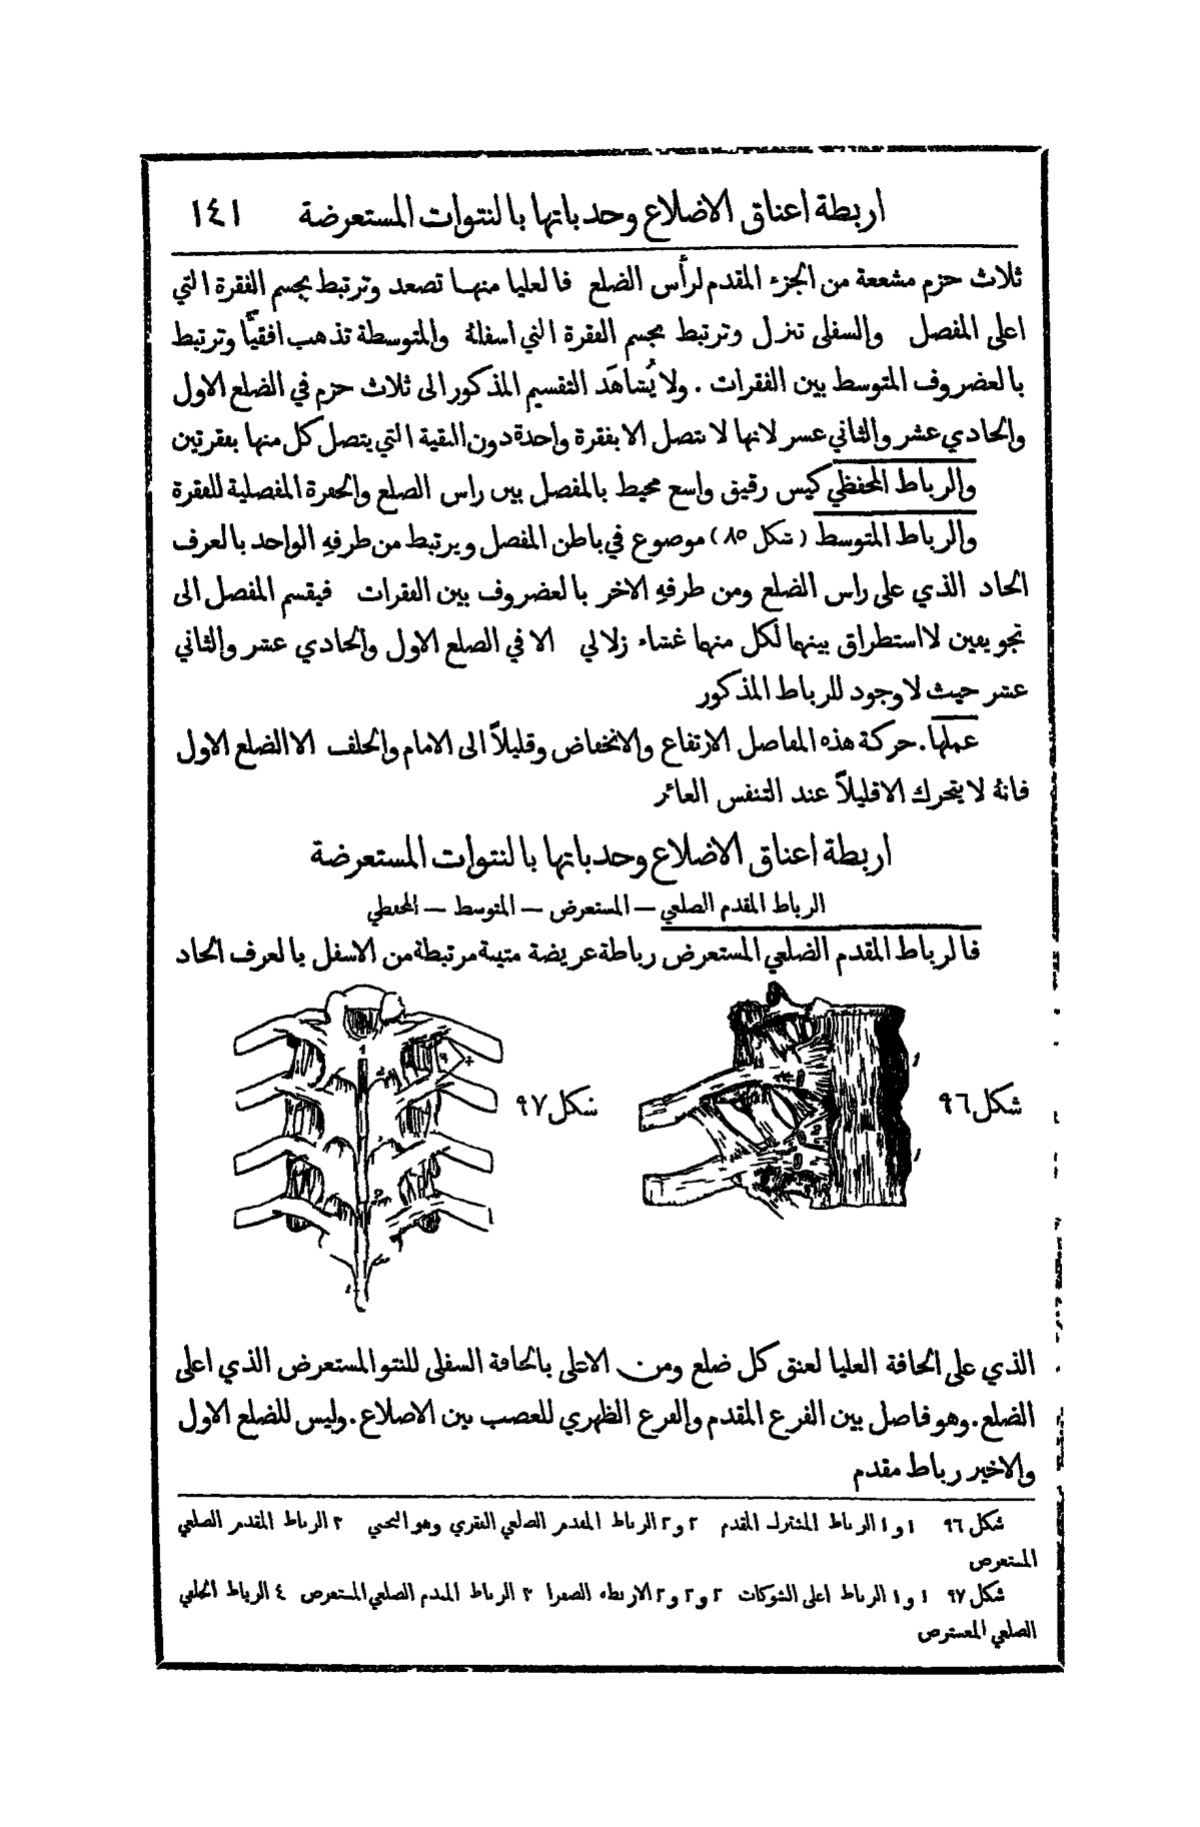 اربطة اعناق الاضلاع وحدباتها بالنتوات المستعرضة ١٤١
ثلاث حزم مشععة من الجزء المقدم لرأس الضلع فالعليا منها تصعد وترتبط بجسم الفقرة التي
اعلى المفصل والسفلى تنزل وترتبط بجسم الفقرة التي اسفلهُ والمتوسطة تذهب افقيًّا وترتبط
بالغضروف المتوسط بين الفقرات . ولا يُشاهَد التقسيم المذكور الى ثلاث حزم في الضلع الاول
والحادي عشر والثاني عشر لانها لا تتصل الا بفقرة واحدة دون البقية التي يتصل كل منها بفقرتين
والرباط المحفظي كيس رقيق واسع محيط بالمفصل بين راس الضلع والحفرة المفصلية للفقرة
والرباط المتوسط (شكل ٨٥) موضوع في باطن المفصل ويرتبط من طرفهِ الواحد بالعرف
الحاد الذي على راس الضلع ومن طرفهِ الاخر بالغضروف بين الفقرات فيقسم المفصل الى
تجويفين لا استطراق بينهما لكل منهما غشاء زلالي الا في الضلع الاول والحادي عشر والثاني
عشر حيث لا وجود للرباط المذكور
عملها . حركة هذه المفاصل الارتفاع والانخفاض وقليلاً الى الامام والخلف الا الضلع الاول
فانهُ لا يتحرك الا قليلاً عند التنفس الغائر
اربطة اعناق الاضلاع وحدباتها بالنتوات المستعرضة
الرباط المقدم الضلعي — المستعرض — المتوسط — المحفظي
فالرباط المقدم الضلعي المستعرض رباطة عريضة متينة مرتبطة من الاسفل بالعرف الحاد
شكل ٩٦
شكل ٩٧
الذي على الحافة العليا لعنق كل ضلع ومن الاعلى بالحافة السفلى للنتو المستعرض الذي اعلى
الضلع . وهو فاصل بين الفرع المقدم والفرع الظهري للعصب بين الاضلاع . وليس للضلع الاول
والاخير رباط مقدم
شكل ٩٦ ١ و ١ الرباط المشترك المقدم ٢ و ٢ الرباط المقدم الضلعي الفقري وهو النجمي ٣ الرباط المقدم الضلعي
المستعرض
شكل ٩٧ ١ و ١ الرباط اعلى الشوكات ٢ و ٢ و ٢ الاربطة الصفرا ٣ الرباط المقدم الضلعي المستعرض ٤ الرباط الخلفي
الضلعي المعسترض